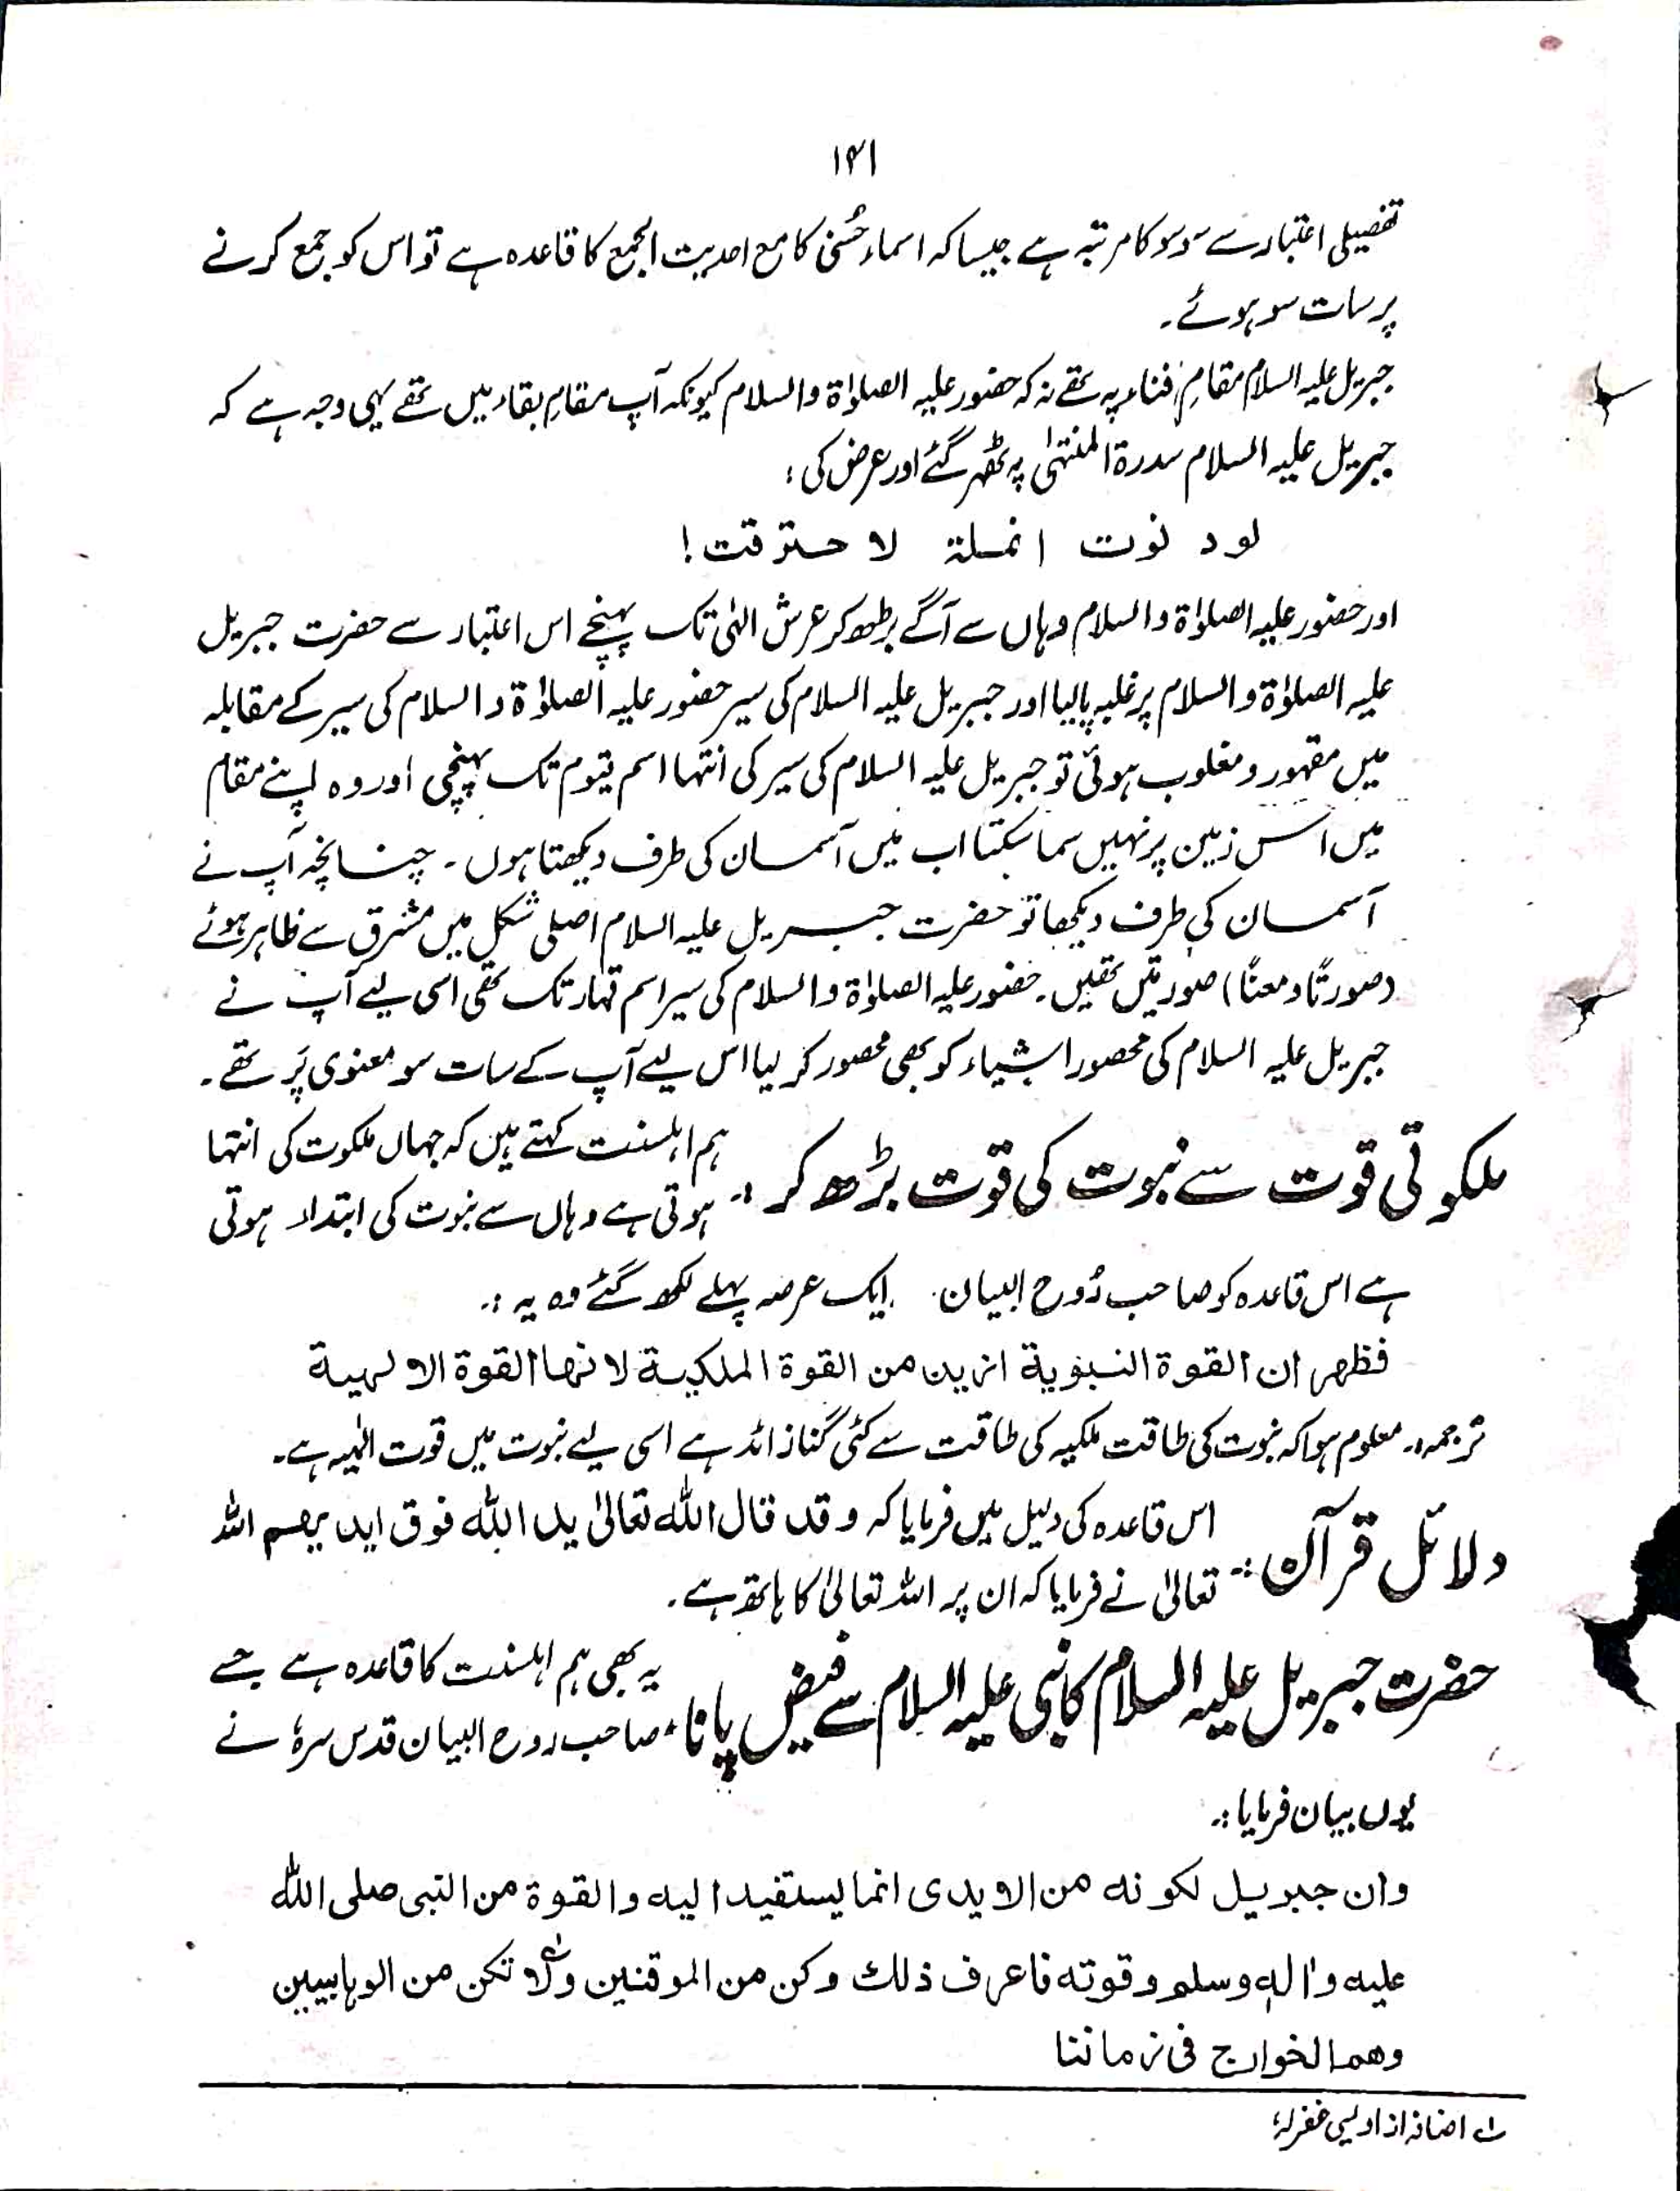 ۱۴۱
تفصیلی اعتبار سے سو سو کا مرتبہ ہے جیسا کہ اسماء حُسنٰی کا مع احدیت الجمع کا قاعدہ ہے تو اس کو جمع کرنے
پر سات سو ہوئے۔
جبریل علیہ السلام مقامِ فناء پہ تھے نہ کہ حضور علیہ الصلوٰۃ والسلام کیونکہ آپ مقامِ بقاء میں تھے یہی وجہ ہے کہ
جبریل علیہ السلام سدرۃ المنتہٰی پہ ٹھہر گئے اور عرض کی :
لو دنوت انملۃ لاحترقت !
اور حضور علیہ الصلوٰۃ والسلام وہاں سے آگے بڑھ کر عرش الٰہی تک پہنچے اس اعتبار سے حضرت جبریل
علیہ الصلوٰۃ والسلام پر غلبہ پالیا اور جبریل علیہ السلام کی سیر حضور علیہ الصلوٰۃ والسلام کی سیر کے مقابلہ
میں مقہور و مغلوب ہوئی تو جبریل علیہ السلام کی سیر کی انتہا اسم قیوم تک پہنچی اور وہ اپنے مقام
میں اس زمین پر نہیں سما سکتا اب میں آسمان کی طرف دیکھتا ہوں۔ چنانچہ آپ نے
آسمان کی طرف دیکھا تو حضرت جبریل علیہ السلام اصلی شکل میں مشرق سے ظاہر ہوئے
(صورتًا و معنًا) صورتیں تھیں۔ حضور علیہ الصلوٰۃ والسلام کی سیر اسم قہار تک تھی اسی لیے آپ نے
جبریل علیہ السلام کی محصور اشیاء کو بھی محصور کر لیا اس لیے آپ کے سات سو معنوی پَر تھے۔
ملکوتی قوت سے نبوت کی قوت بڑھ کر :۔ ہم اہلسنت کہتے ہیں کہ جہاں ملکوت کی انتہا
ہوتی ہے وہاں سے نبوت کی ابتداء ہوتی
ہے اس قاعدہ کو صاحب رُوح البیان ایک عرصہ پہلے لکھ گئے وہ یہ :۔
فظھر ان القوۃ النبویۃ ازید من القوۃ الملکیۃ لانھا القوۃ الالھیۃ
ترجمہ :۔ معلوم ہوا کہ نبوت کی طاقت ملکیہ کی طاقت سے کئی گنا زائد ہے اسی لیے نبوت میں قوت الٰہیہ ہے۔
دلائل قرآن :۔ اس قاعدہ کی دلیل میں فرمایا کہ وقد قال اللہ تعالیٰ ید اللہ فوق ایدیھم اللہ
تعالیٰ نے فرمایا کہ ان پر اللہ تعالیٰ کا ہاتھ ہے۔
حضرت جبریل علیہ السلام کا نبی علیہ السلام سے فیض پانا : یہ بھی ہم اہلسنت کا قاعدہ ہے جسے
صاحب روح البیان قدس سرہٗ نے
یوں بیان فرمایا :۔
وان جبریل لکونہ من الایدی انما یستفید الیہ والقوۃ من النبی صلی اللہ
علیہ واٰلہٖ وسلم وقوتہ فاعرف ذلك وکن من الموقنین و؎ لا تکن من الوہابیین
وھم الخوارج فی زماننا
؎ اضافہ از اویسی غفرلہٗ